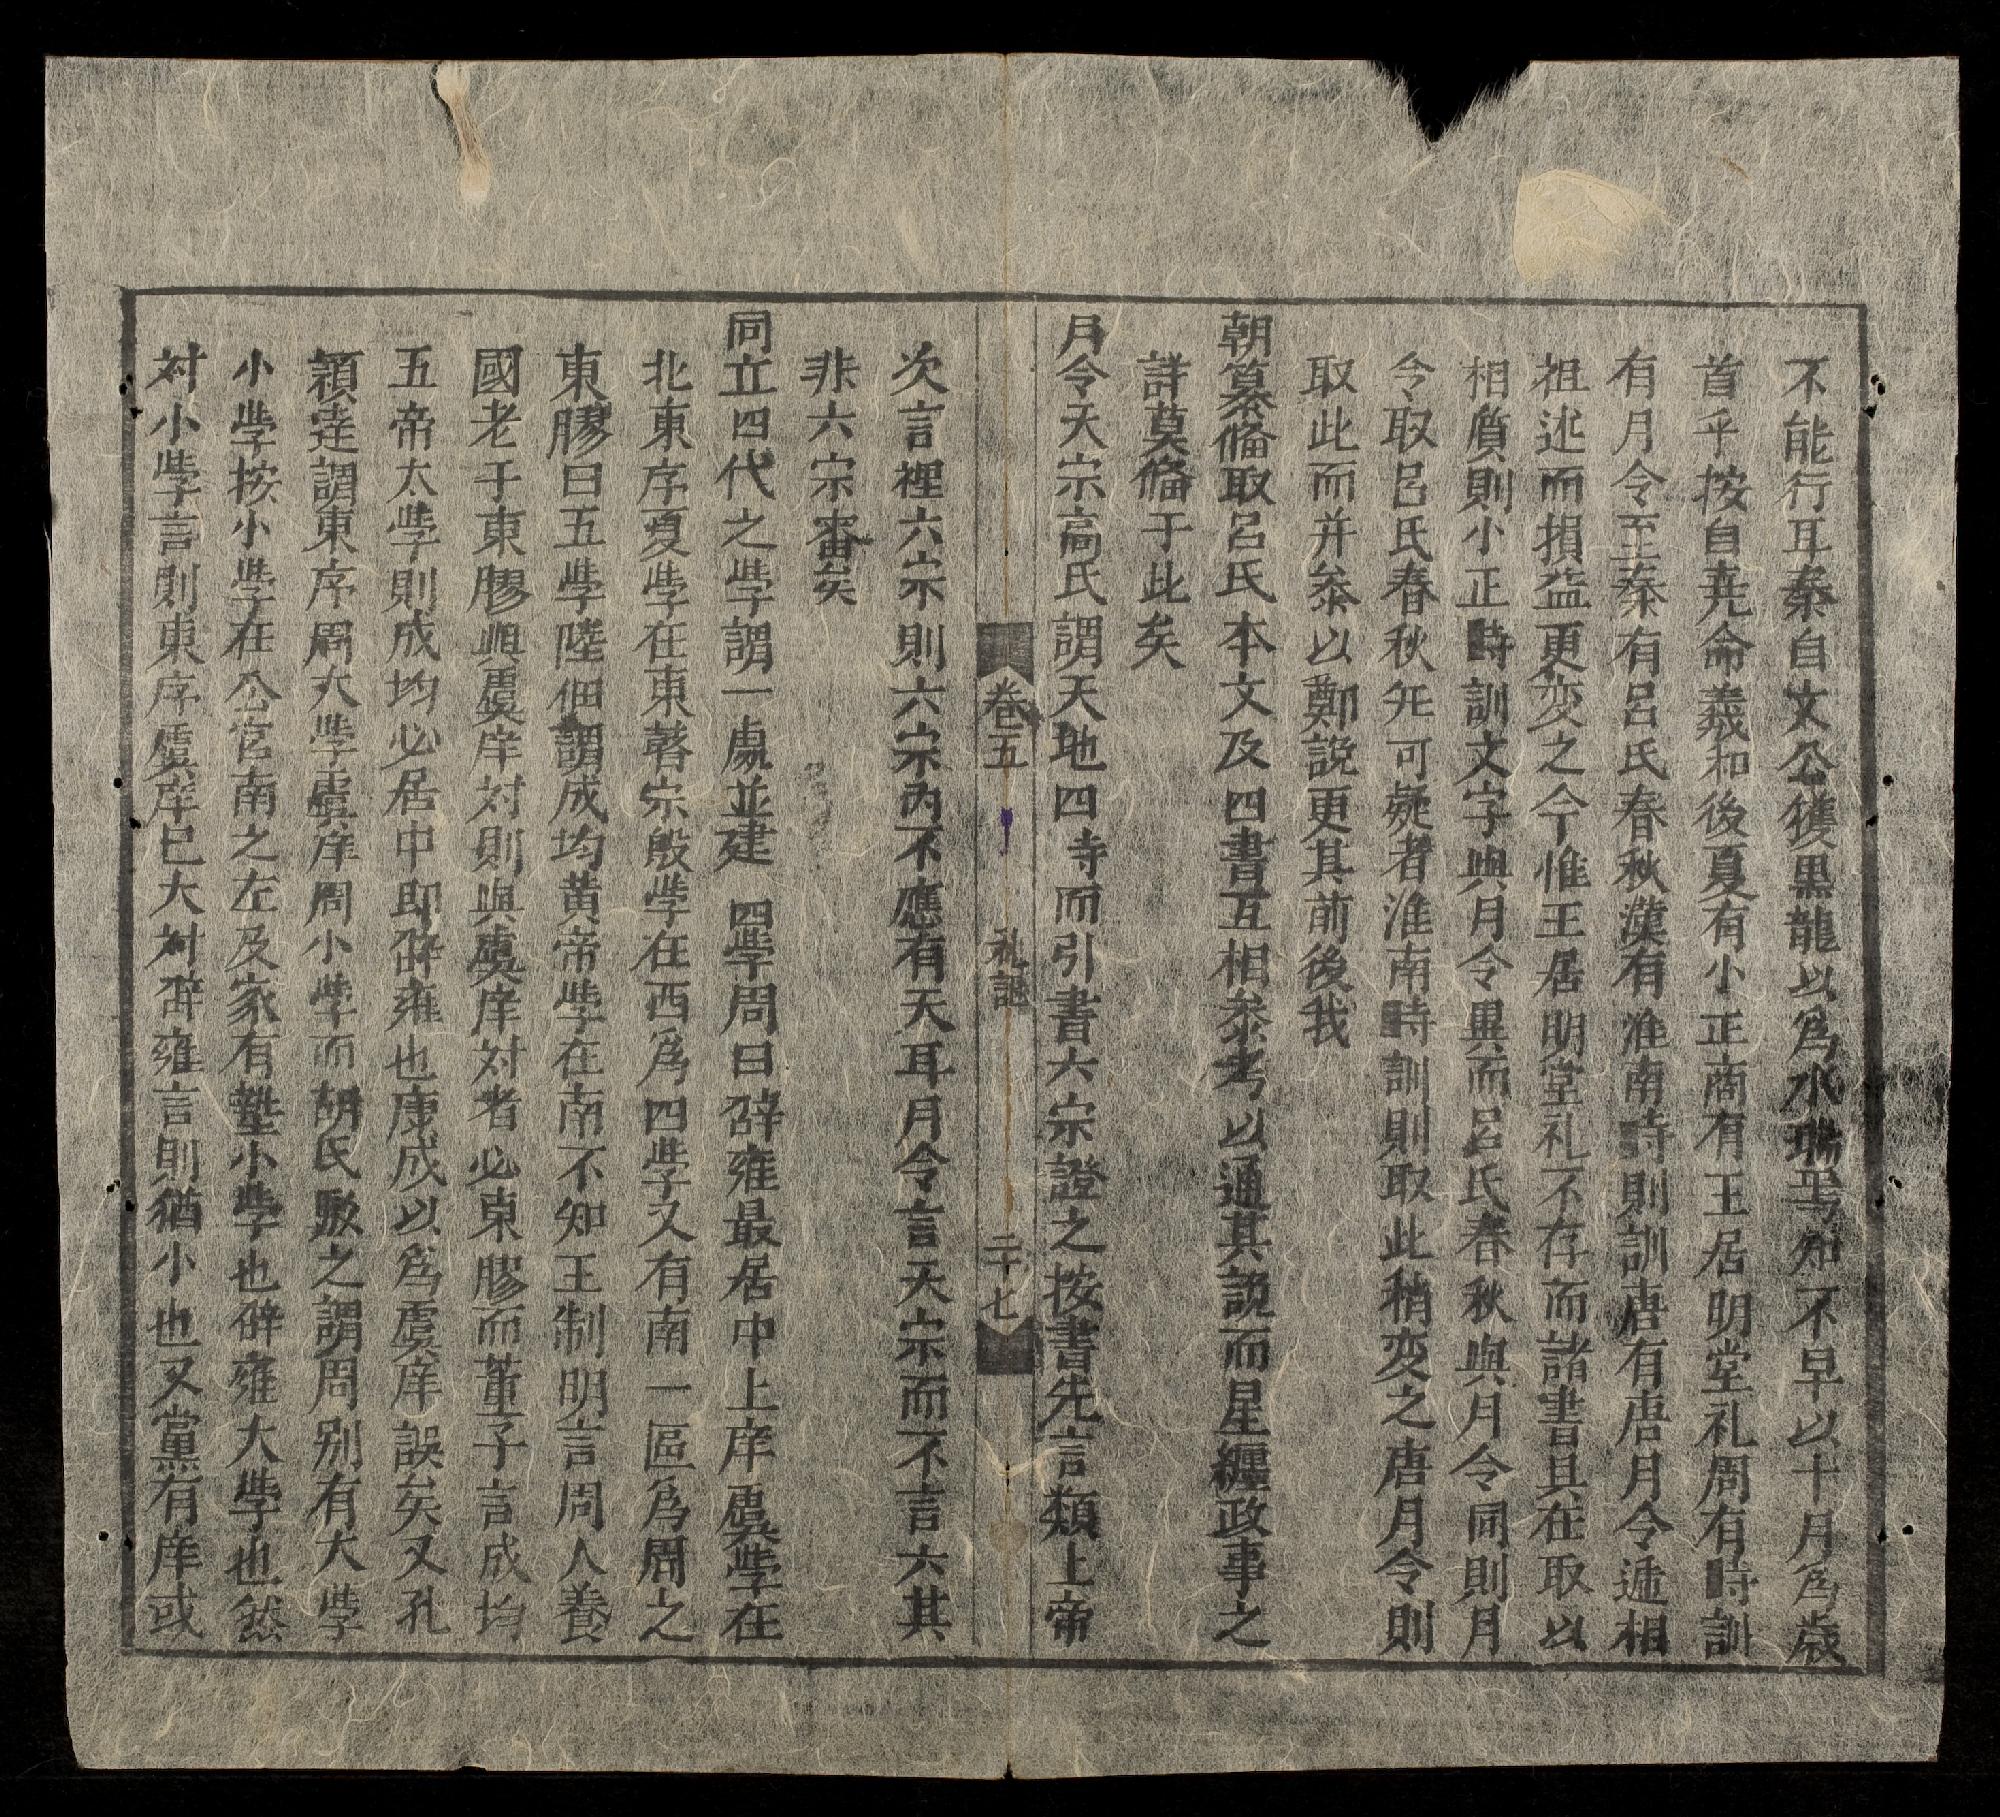 不能行耳秦自文公獲黒龍以為水瑞焉知不早以十月為歳
首乎按自堯命羲和後夏有小正商有王居明堂礼周有時訓
有月令至秦有呂氏春秋漢有淮南時則訓唐有唐月令逓相
祖述而損益更変之今惟王居明堂礼不存而諸書具在取以
相質則小正時訓文字與月令異而呂氏春秋與月令同則月
令取呂氏春秋旡可疑者淮南時訓則取此稍変之唐月令則
取此而并叅以鄭説更其前後我
朝纂脩取呂氏本文及四書互相叅考以通其說而星纏政事之
詳莫脩于此矣
月令天宗高氏謂天地四寺而引書六宗證之按書先言類上帝
卷五 礼記 二十七
次言禋六宗則六宗內不應有天耳月令言天宗而不言六其
非六宗審矣
同立四代之学謂一處並建四学周曰辟雍最居中上庠虞学在
北東序夏学在東瞽宗殷学在西為四学又有南一區為周之
東膠曰五学陸佃謂成均黄帝学在南不知王制明言周人養
國老于東膠與虞庠对則與虞庠对者必東膠而董子言成均
五帝太学則成均必居中即辟雍也康成以為虞庠誤矣又孔
穎達謂東序周大学虞庠周小学而胡氏駁之謂周别有大学
小学按小学在公宮南之左及家有塾小学也辟雍大学也然
对小学言則東序虞庠巳大对辟雍言則猶小也又黨有庠或